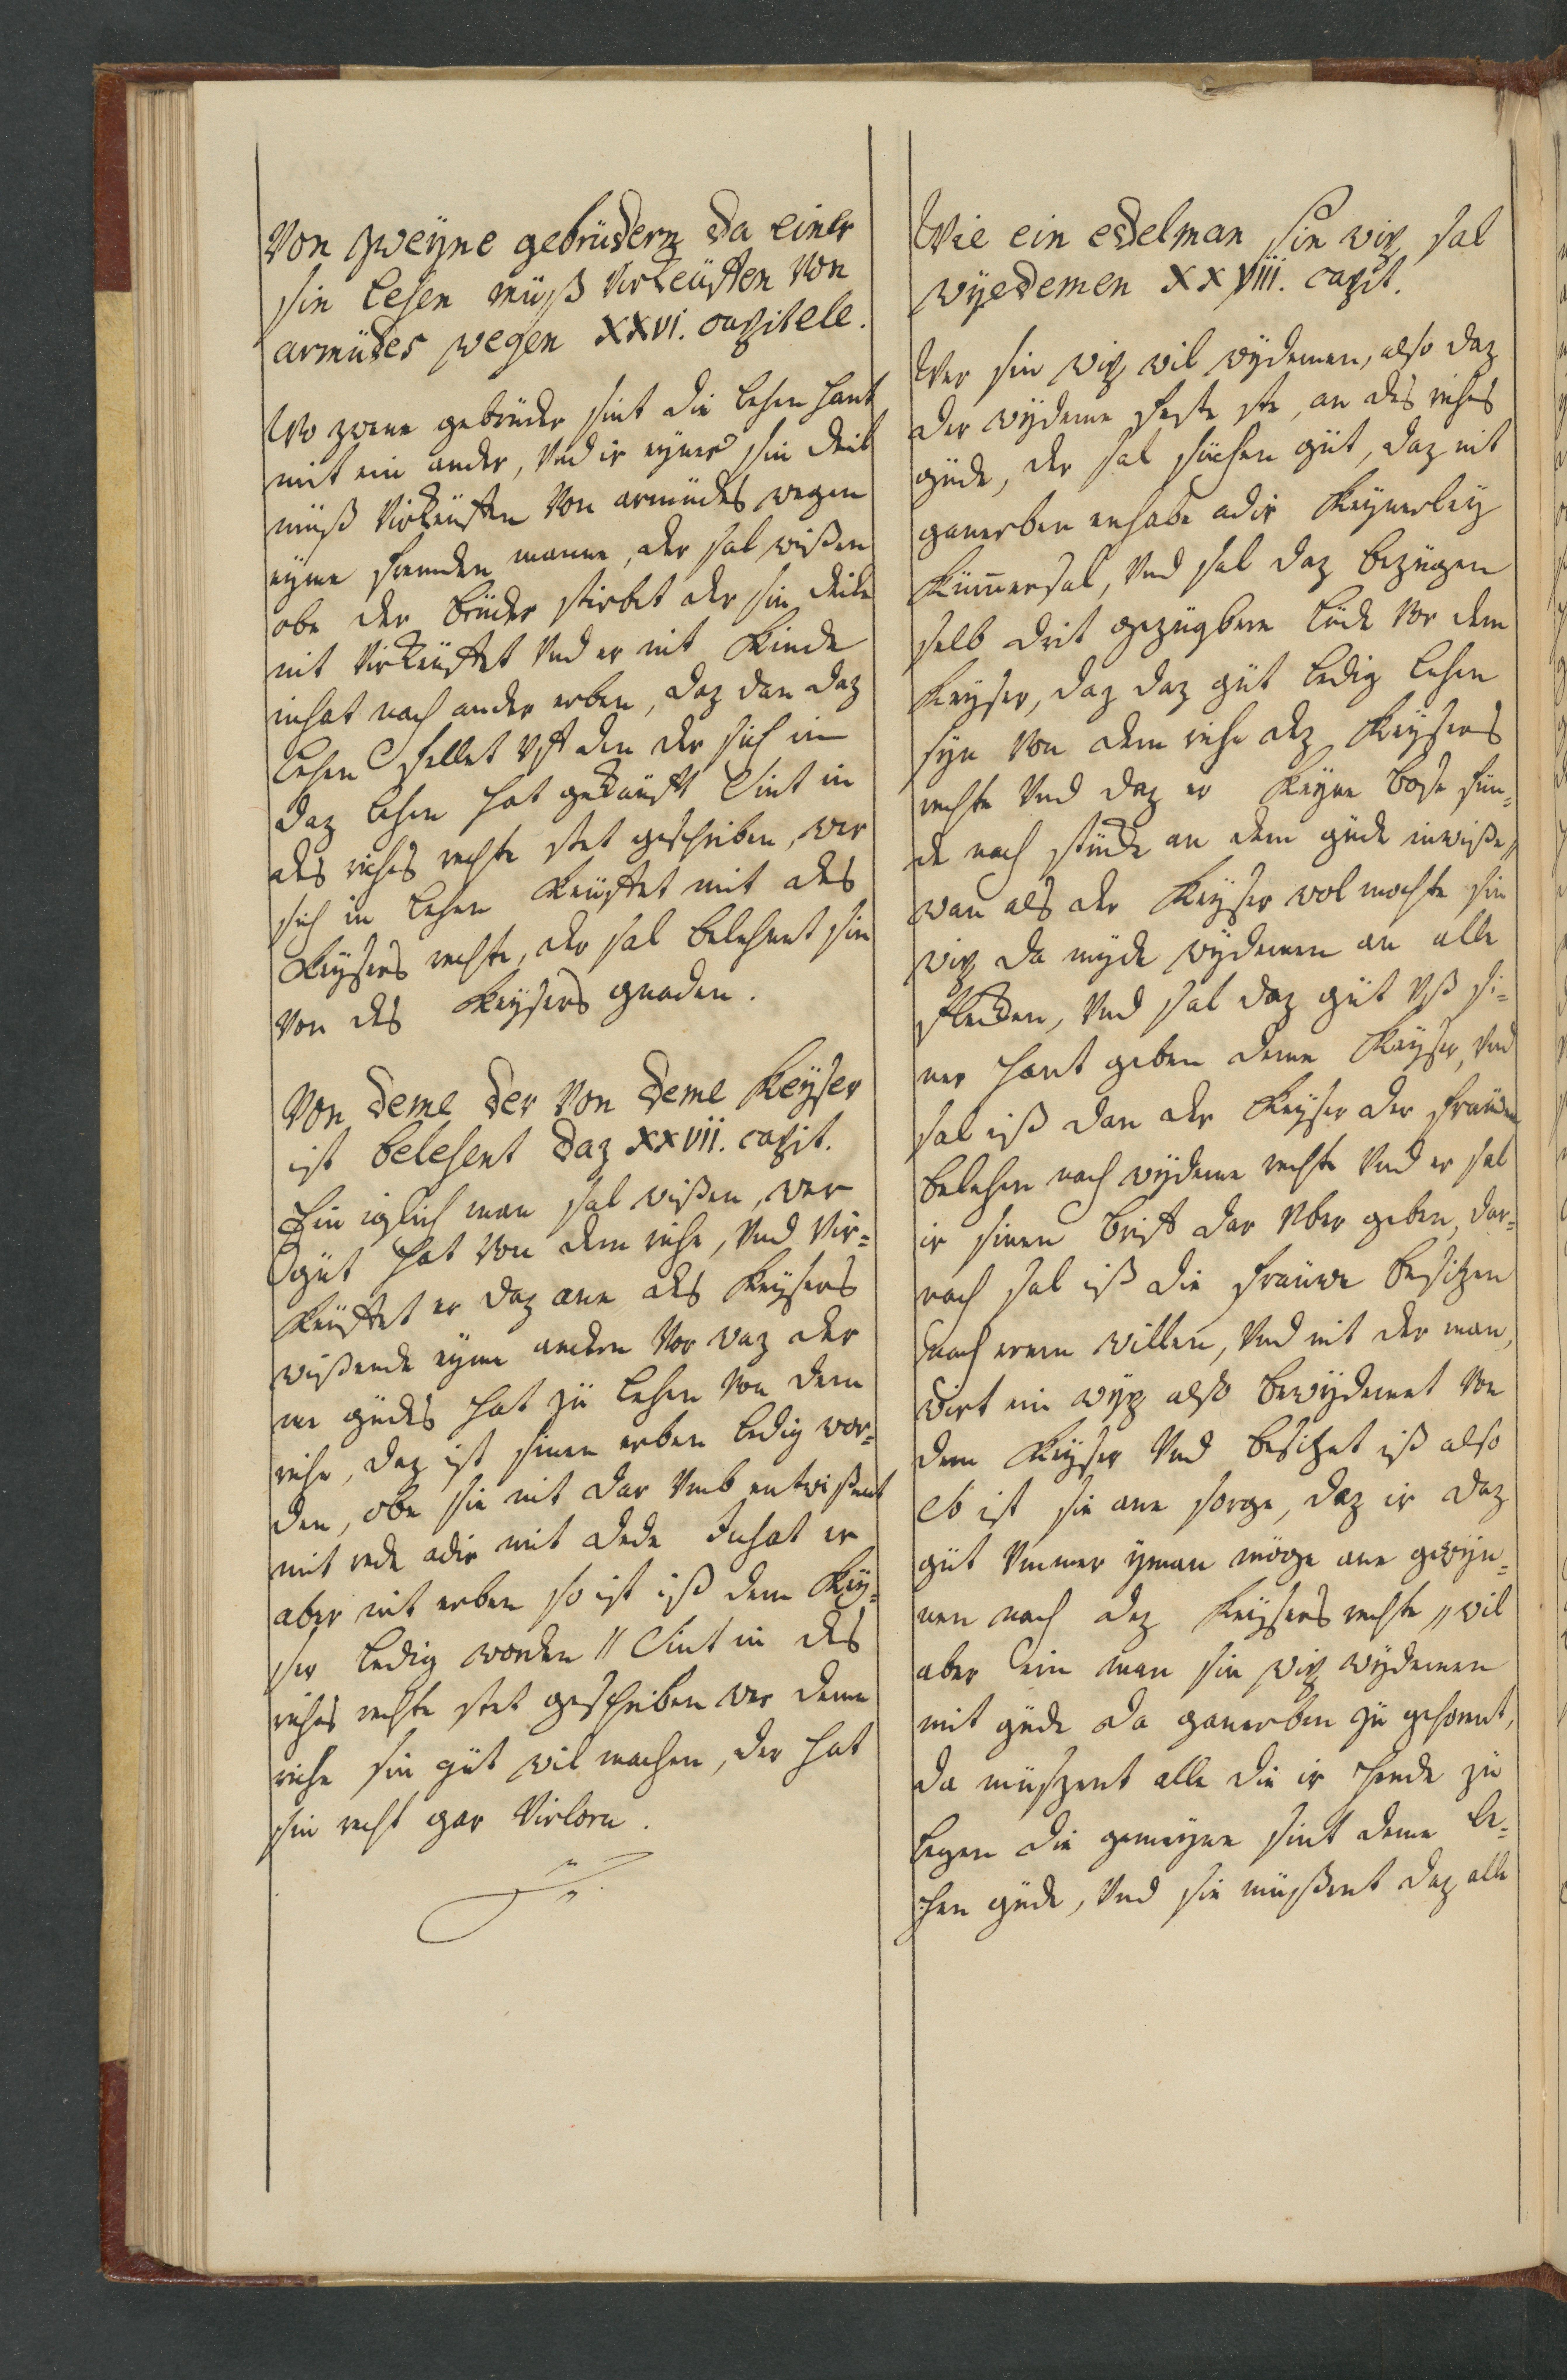 Von zweyne gebrüdern da einer
sin lehen müß virkeüffen von
armüdes wegen XXVI. capitele.
Wo zwene gebrüder sint die lehen hant
mit ein ander, Vnd ir eyner sin deil
müß virkeüffen von armüdes wegen
eyme fremden manne, der sal wißen
obe der brüder stirbet der sin deile
nit virkeüffet Vnd er nit kinde
inhat noch ander erben, daz dan daz
lehen fellet Vff den der sich in
daz lehen hat gekaüfft Sint in
des riches rechte stet geschriben, wer
sich in lehen keüffet mit des
keysers rechte, der sal belehent sin
von des keysers gnaden.
Von deme der von deme keyser
ist belehent daz XXVII. capit.
Ein iglich man sal wißen, wer
güt hat von dem riche, Vnd vir=
keüffet er daz ane des keysers
wißende eyme andern vor waz der
me güdes hat zü lehen von dem
riche, daz ist sinen erben ledig wor=
den, obe sie nit dar vmb entwißent
mit rede adir mit dede Inhat er
aber nit erben so ist iß dem key=
ser ledig worden // Sint in des
riches rechte stet geschriben wer deme
riche sin güt wil machen, der hat
sin recht gar virlorn.
Wie ein eddelman sin wip sal
wyedemen XXVIII. capit.
Wer sin wip wil wydemen, also daz
der wydeme feste ste, an des riches
güde, der sal süchen güt, daz nit
ganerben enhabe adir keynerley
kümersal, Vnd sal daz bezügen
selb drit gezügbere lüde vor dem
keyser, daz daz güt ledig lehen
syn von dem riche dez keysers
rechte Vnd daz er keyne bose sün=
de noch stünde an dem güde inwiße,,
wan als der keyser wol mochte sin
wip da myde wydemen an alle
flecken, Vnd sal daz güt vß si=
ner hant geben deme keyser, Vnd
sal iß dan der keyser der fraüwen
belehen nach wydeme rechte Vnd er sal
ir sinen brieff dar vber geben, dar=
nach sal iß die fraüwe besitzen
nach irem willen, Vnd nit der man,
wirt ein wyp also bewydemet von
dem keyser Vnd besitzet iß also
So ist sie ane sorge, daz ir daz
güt vmmer yman möge ane gewyn=
nen nach dez keysers rechte,, wil
aber ein man sin wip wydemen
mit güde da ganerben zü gehornt,
da müszent alle die ir hende zü
legen die gemeyne sint deme le=
hen güde, Vnd sie müßent daz alle